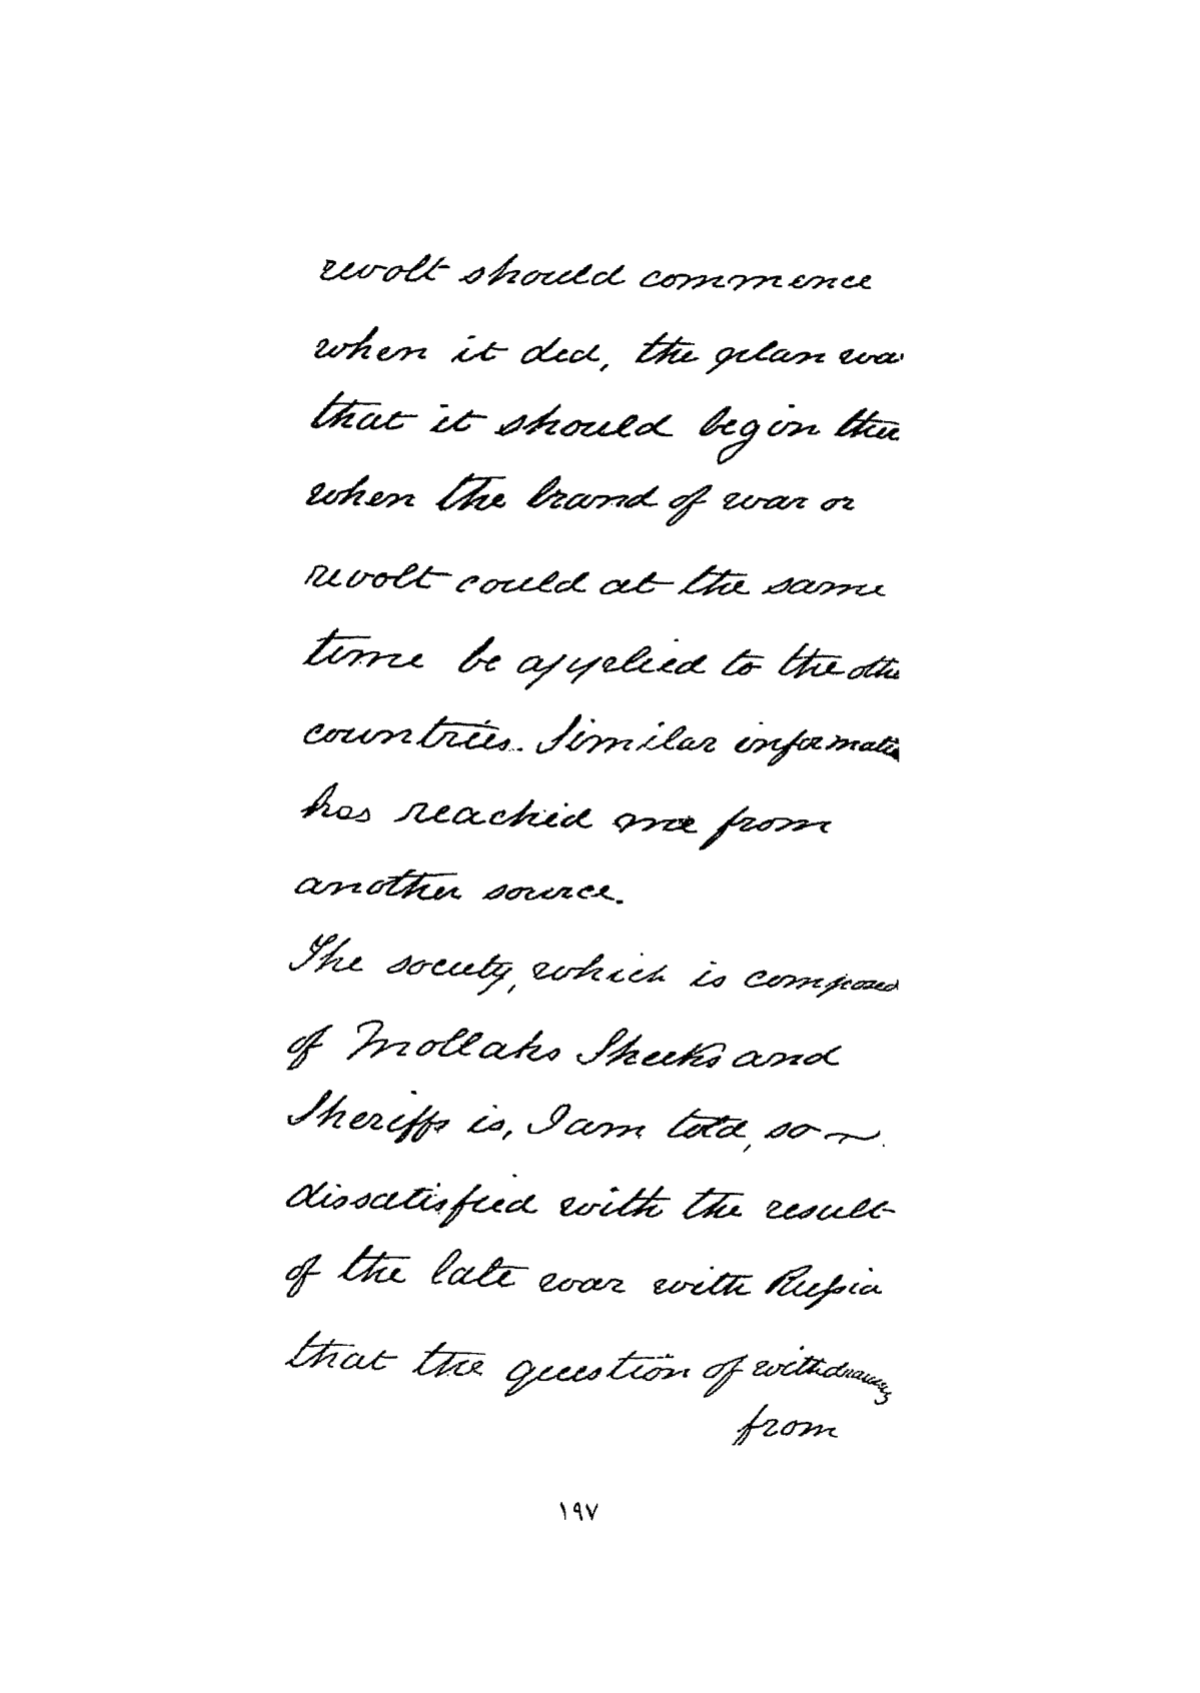 revolt should commence
when it did, the plan wa
that it should begin then
when the brand of war or
revolt could at the same
time be applied to the othe
countries. Similar informatio
has reached me from
another source.
The society, which is composed
of Mollahs Sheeks and
Sheriffs is, I am told, so
dissatisfied with the result
of the late war with Russia
that the question of withdrawing
from
١٩٧